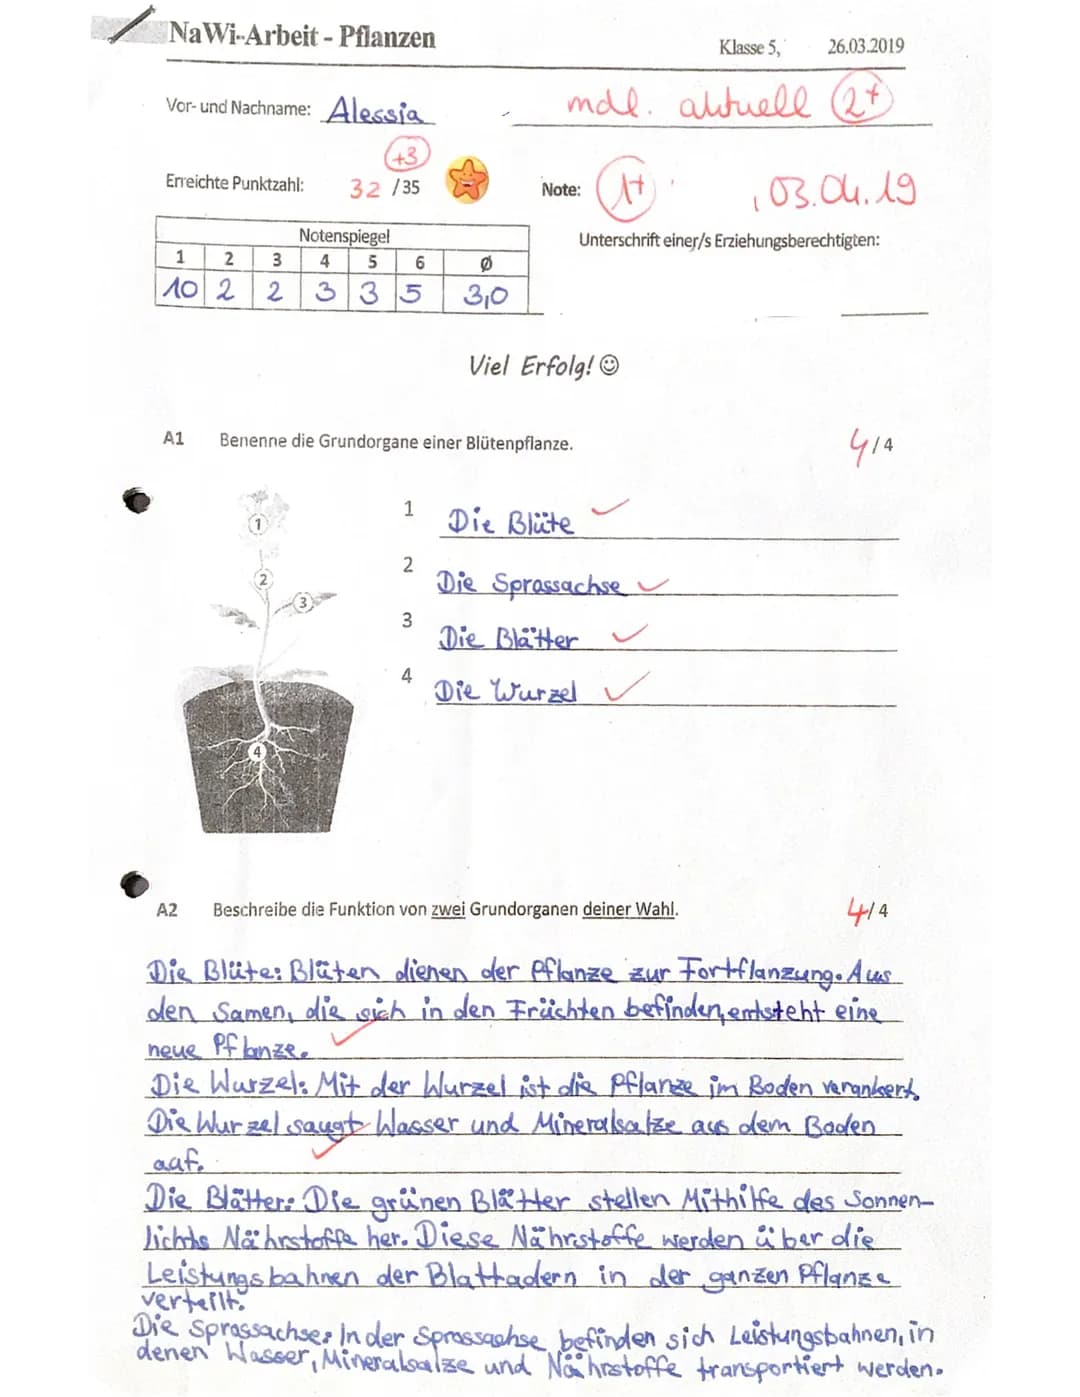 NaWi-Arbeit - Pflanzen
Klasse 5, 26.03.2019
Vor- und Nachname: Alessia
mdl. aktuell 2+
+3
Erreichte Punktzahl: 32 /35
Note: 1+
03.04.19
Unterschrift einer/s Erziehungsberechtigten:
Notenspiegel
1 2 3 4 5 6 Ø
10 2 2 3 3 5 3,0
Viel Erfolg! ☺
A1 Benenne die Grundorgane einer Blütenpflanze. 4/4
1 Die Blüte
2 Die Sprossachse
3 Die Blätter
4 Die Wurzel
1
2
3
4
A2 Beschreibe die Funktion von zwei Grundorganen deiner Wahl. 4/4
Die Blüte: Blüten dienen der Pflanze zur Fortflanzung. Aus
den Samen, die sich in den Früchten befinden, entsteht eine
neue Pflanze.
Die Wurzel: Mit der Wurzel ist die Pflanze im Boden verankert.
Die Wurzel saugt Wasser und Mineralsalze aus dem Boden
auf.
Die Blätter: Die grünen Blätter stellen Mithilfe des Sonnen-
lichts Nährstoffe her. Diese Nährstoffe werden über die
Leistungsbahnen der Blattadern in der ganzen Pflanze
verteilt.
Die Sprossachse: In der Sprossachse befinden sich Leistungsbahnen, in
denen Wasser, Mineralsalze und Nährstoffe transportiert werden.